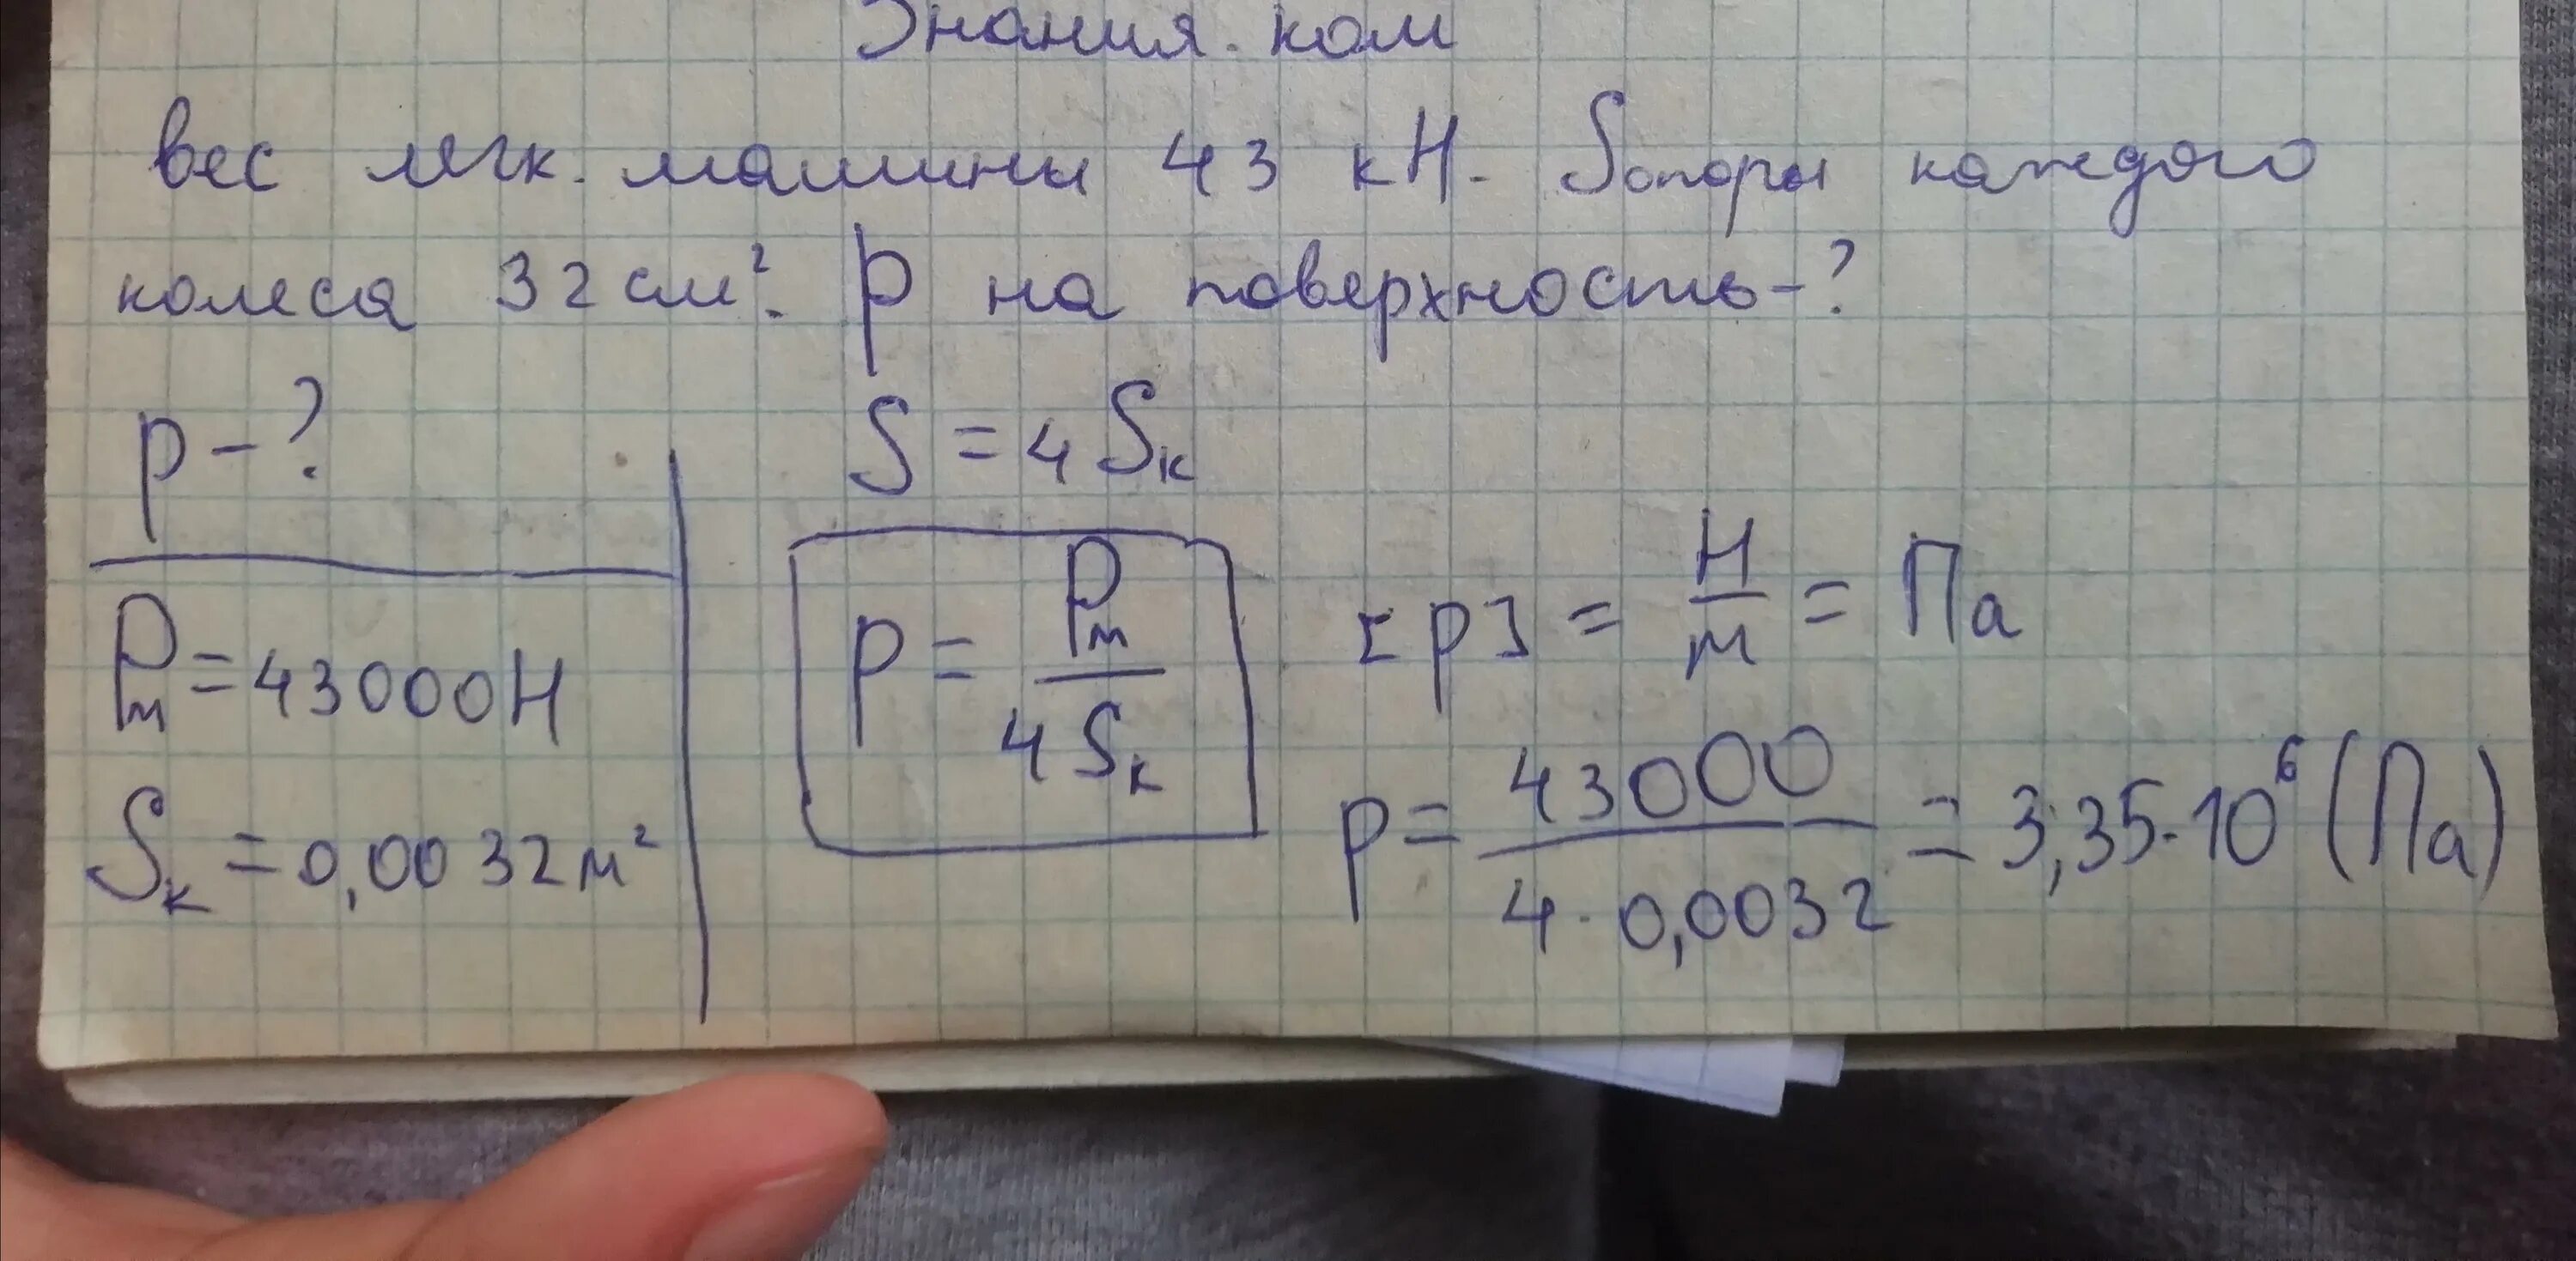 Знания.ком
вес легк. машины 43 кН. Sопоры каждого
колеса 32 см². p на поверхность-?
p-?
Pм=43000Н
Sк=0,0032м²
S=4Sк
p=Pм/4Sк
[p]=Н/м=Па
p=43000/4·0,0032=3,35·10⁶(Па)